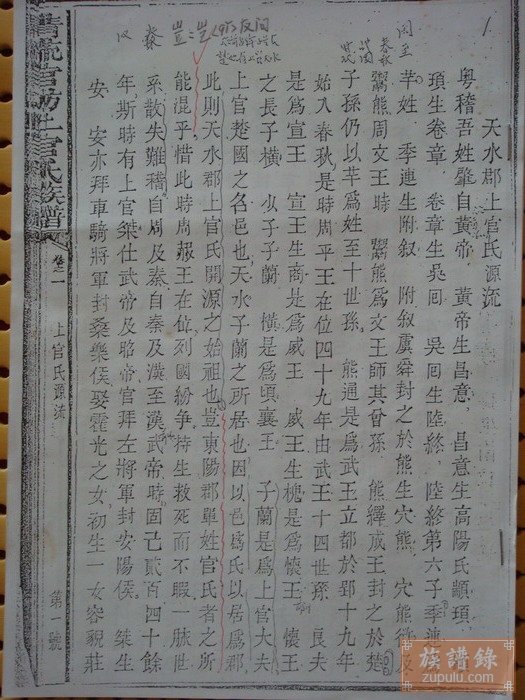 天水郡上官氏源流
粵稽吾姓肇自黃帝 黃帝生昌意 昌意生高陽氏顓頊
頊生卷章 卷章生吳囘 吳囘生陸終 陸終第六子季連
芉姓 季連生附叙 附叙虞舜封之於熊生穴熊 穴熊
鬻熊周文王時 鬻熊爲文王師其曾孫 熊繹成王封之於楚
子孫仍以芉爲姓至十世孫 熊通是爲武王立都於郢十九年
始入春秋是時周平王在位四十九年由武王十四世孫 良夫
是爲宣王 宣王生商是爲威王 威王生槐是爲懷王 懷王
之長子橫 少子子蘭 橫是爲頃襄王 子蘭是爲上官大夫
上官楚國之名邑也天水子蘭之所居也因以邑爲氏以居爲郡
此則天水郡上官氏開源之始祖也豈東陽郡單姓官氏者之所
能混乎惜此時周赧王在位列國紛爭持生救死而不暇一脉世
系散失難稽自周及秦自秦及漢至漢武帝時固已貳百四十餘
年斯時有上官桀仕武帝及昭帝官拜左將軍封安陽侯 桀生
安 安亦拜車騎將軍封桑樂侯娶霍光之女初生一女容貌莊
清流官坊上官氏族譜
卷之一
上官氏源流
第一號
族譜錄
zupulu.com